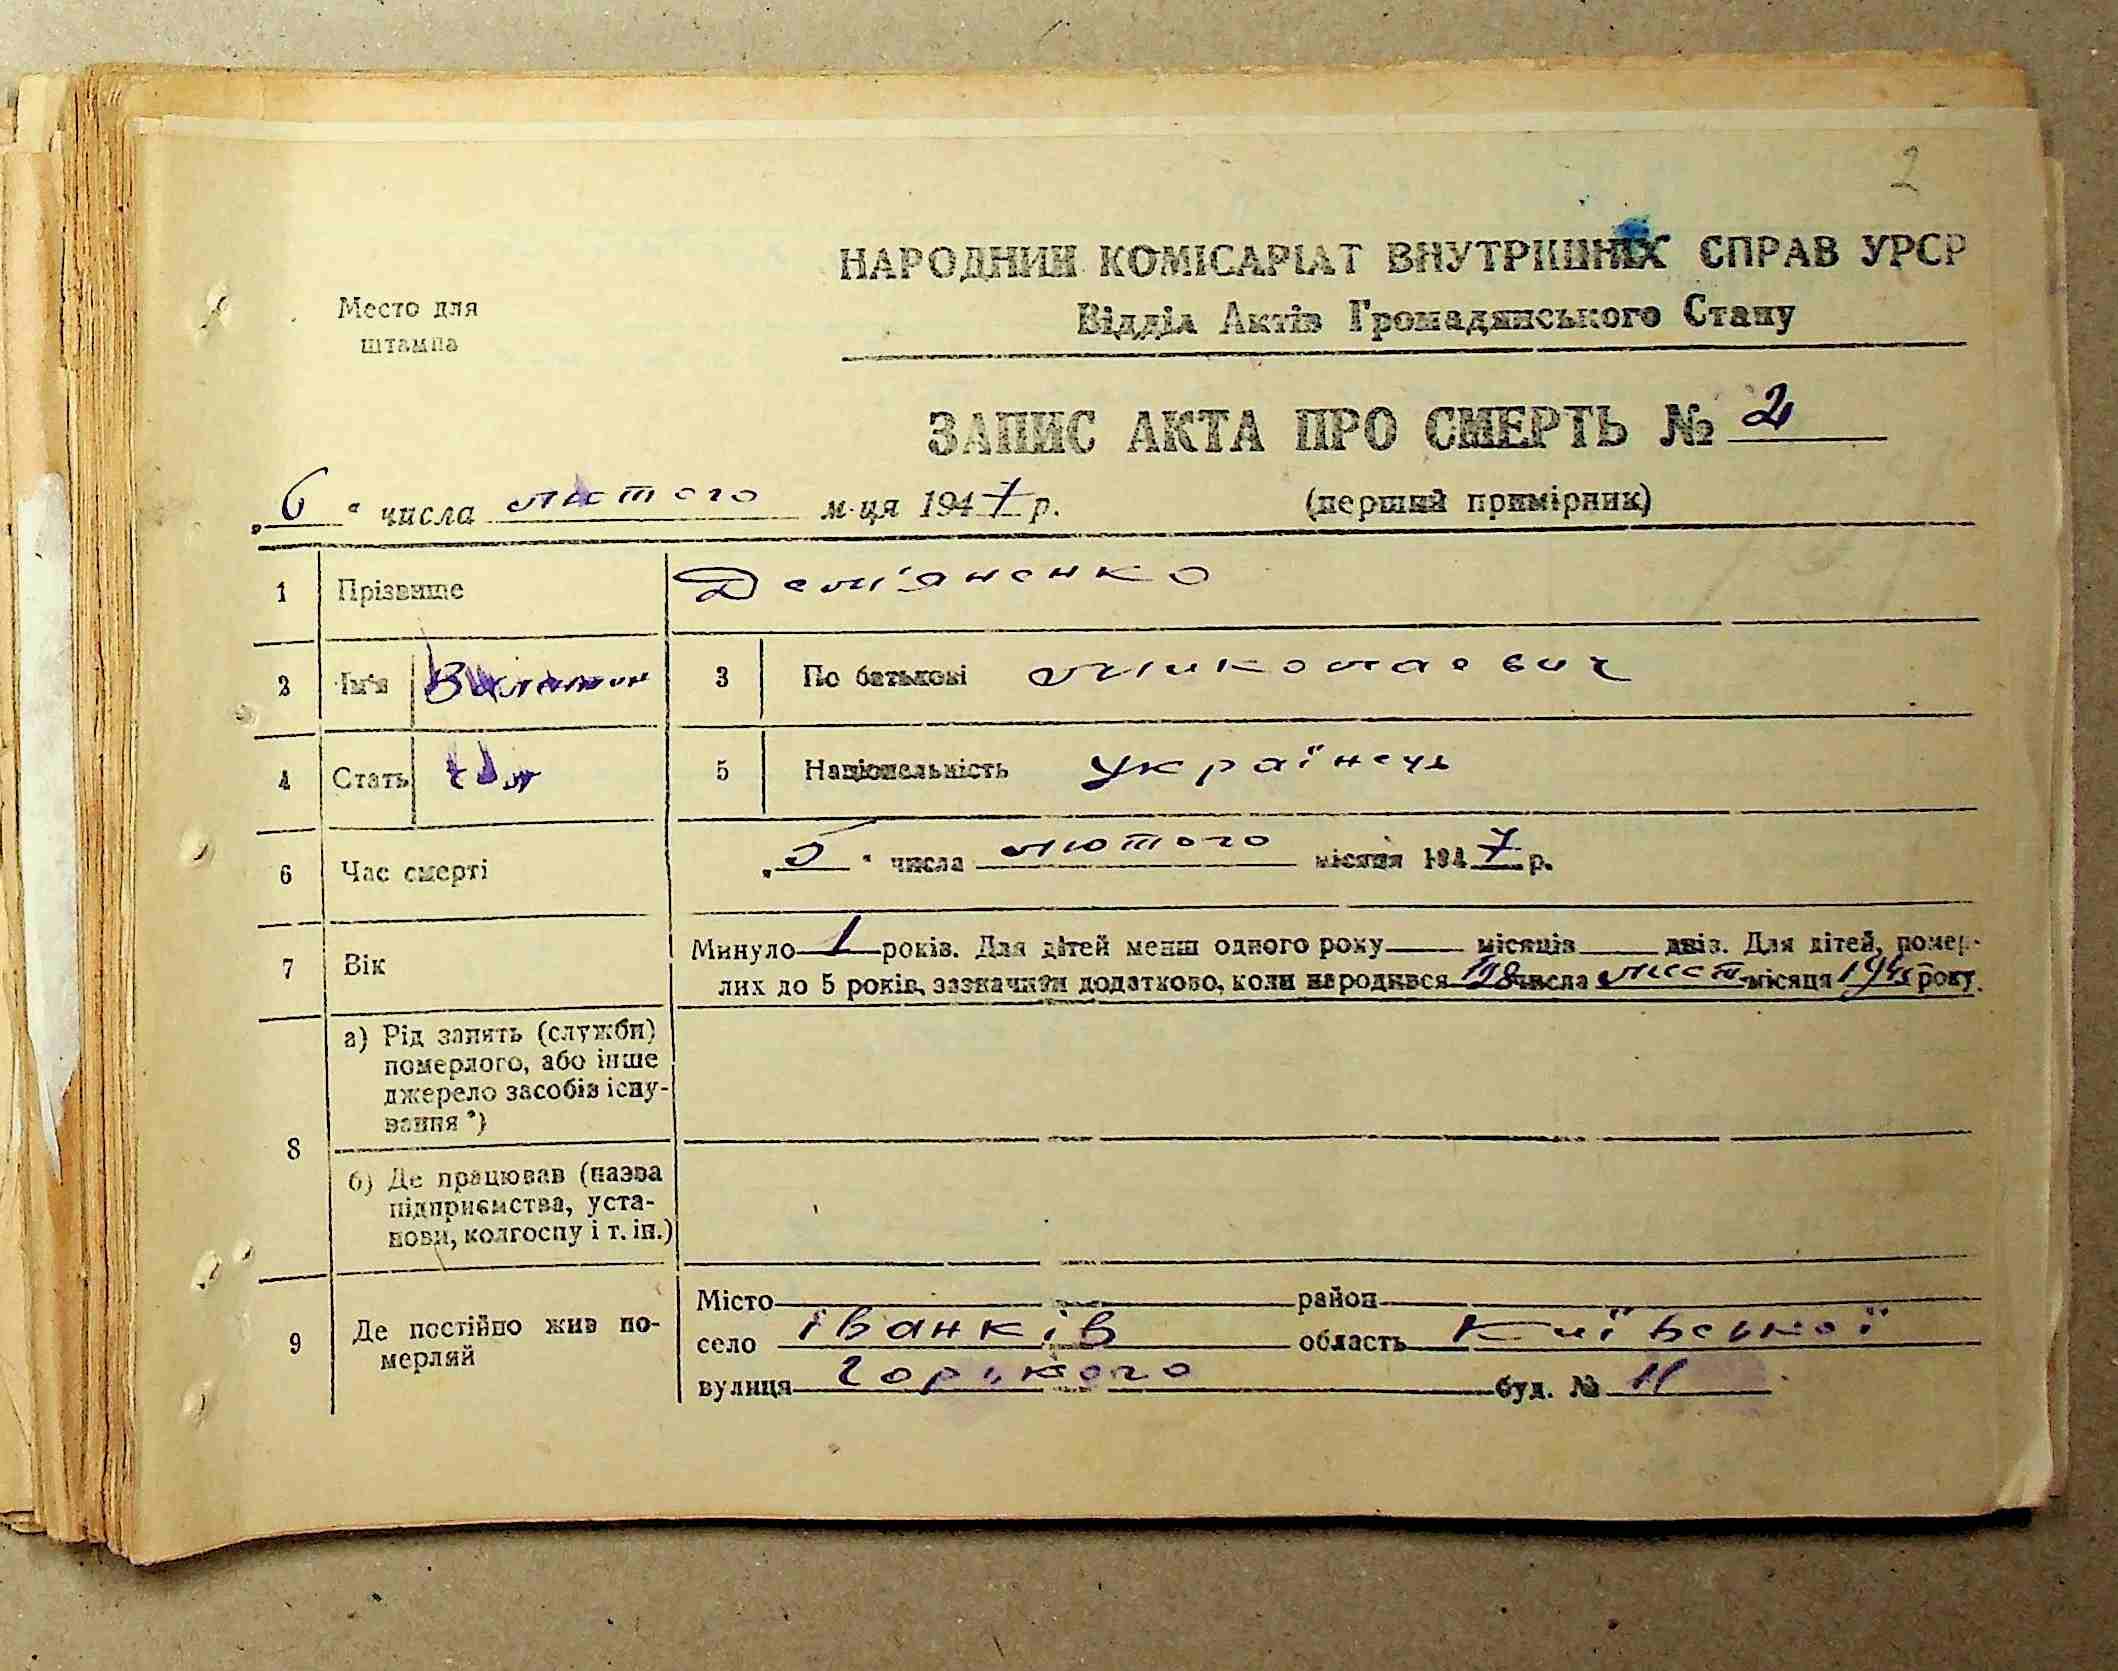 2
НАРОДНИЙ КОМІСАРІАТ ВНУТРІШНІХ СПРАВ УРСР
Відділ Актів Громадянського Стану
Место для
штампа
ЗАПИС АКТА ПРО СМЕРТЬ № 2
„6“ числа лютого м-ця 1947 р. (перший примірник)
1 Прізвище Дем'яненко
2 Ім'я Валентин 3 По батькові Миколаевич
4 Стать чол 5 Національність українець
6 Час смерті „5“ числа лютого місяця 1947 р.
7 Вік Минуло 1 років. Для дітей менш одного року місяців днів. Для дітей, помер-
лих до 5 років, зазначити додатково, коли народився числа лист місяця 1945 року.
8 а) Рід занять (служби)
померлого, або інше
джерело засобів існу-
вання *)
б) Де працював (назва
підприємства, уста-
нови, колгоспу і т. ін.)
9 Де постійно жив по-
мерлий
Місто район
село Іванків область Київської
вулиця Горького буд. № 11